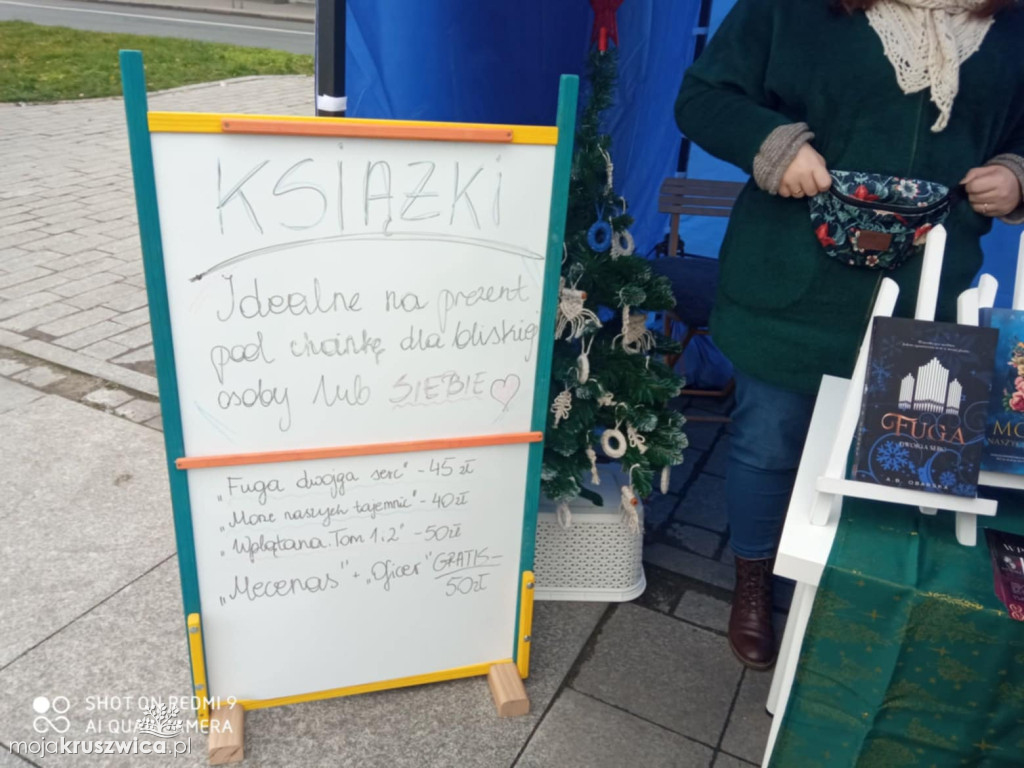 KSIĄŻKI
Idealne na prezent
pod choinkę dla bliskiej
osoby lub SIEBIE
„Fuga dwojga serc" - 45 zł
„Morze naszych tajemnic" - 40 zł
„Wplątana. Tom 1.2" - 50 zł
„Mecenas" + „Oficer" GRATIS -
50 zł
FUGA
DWOJGA SERC
MO
NASZYC
WP
SHOT ON REDMI 9
AI QUAD CAMERA
mojakruszwica.pl